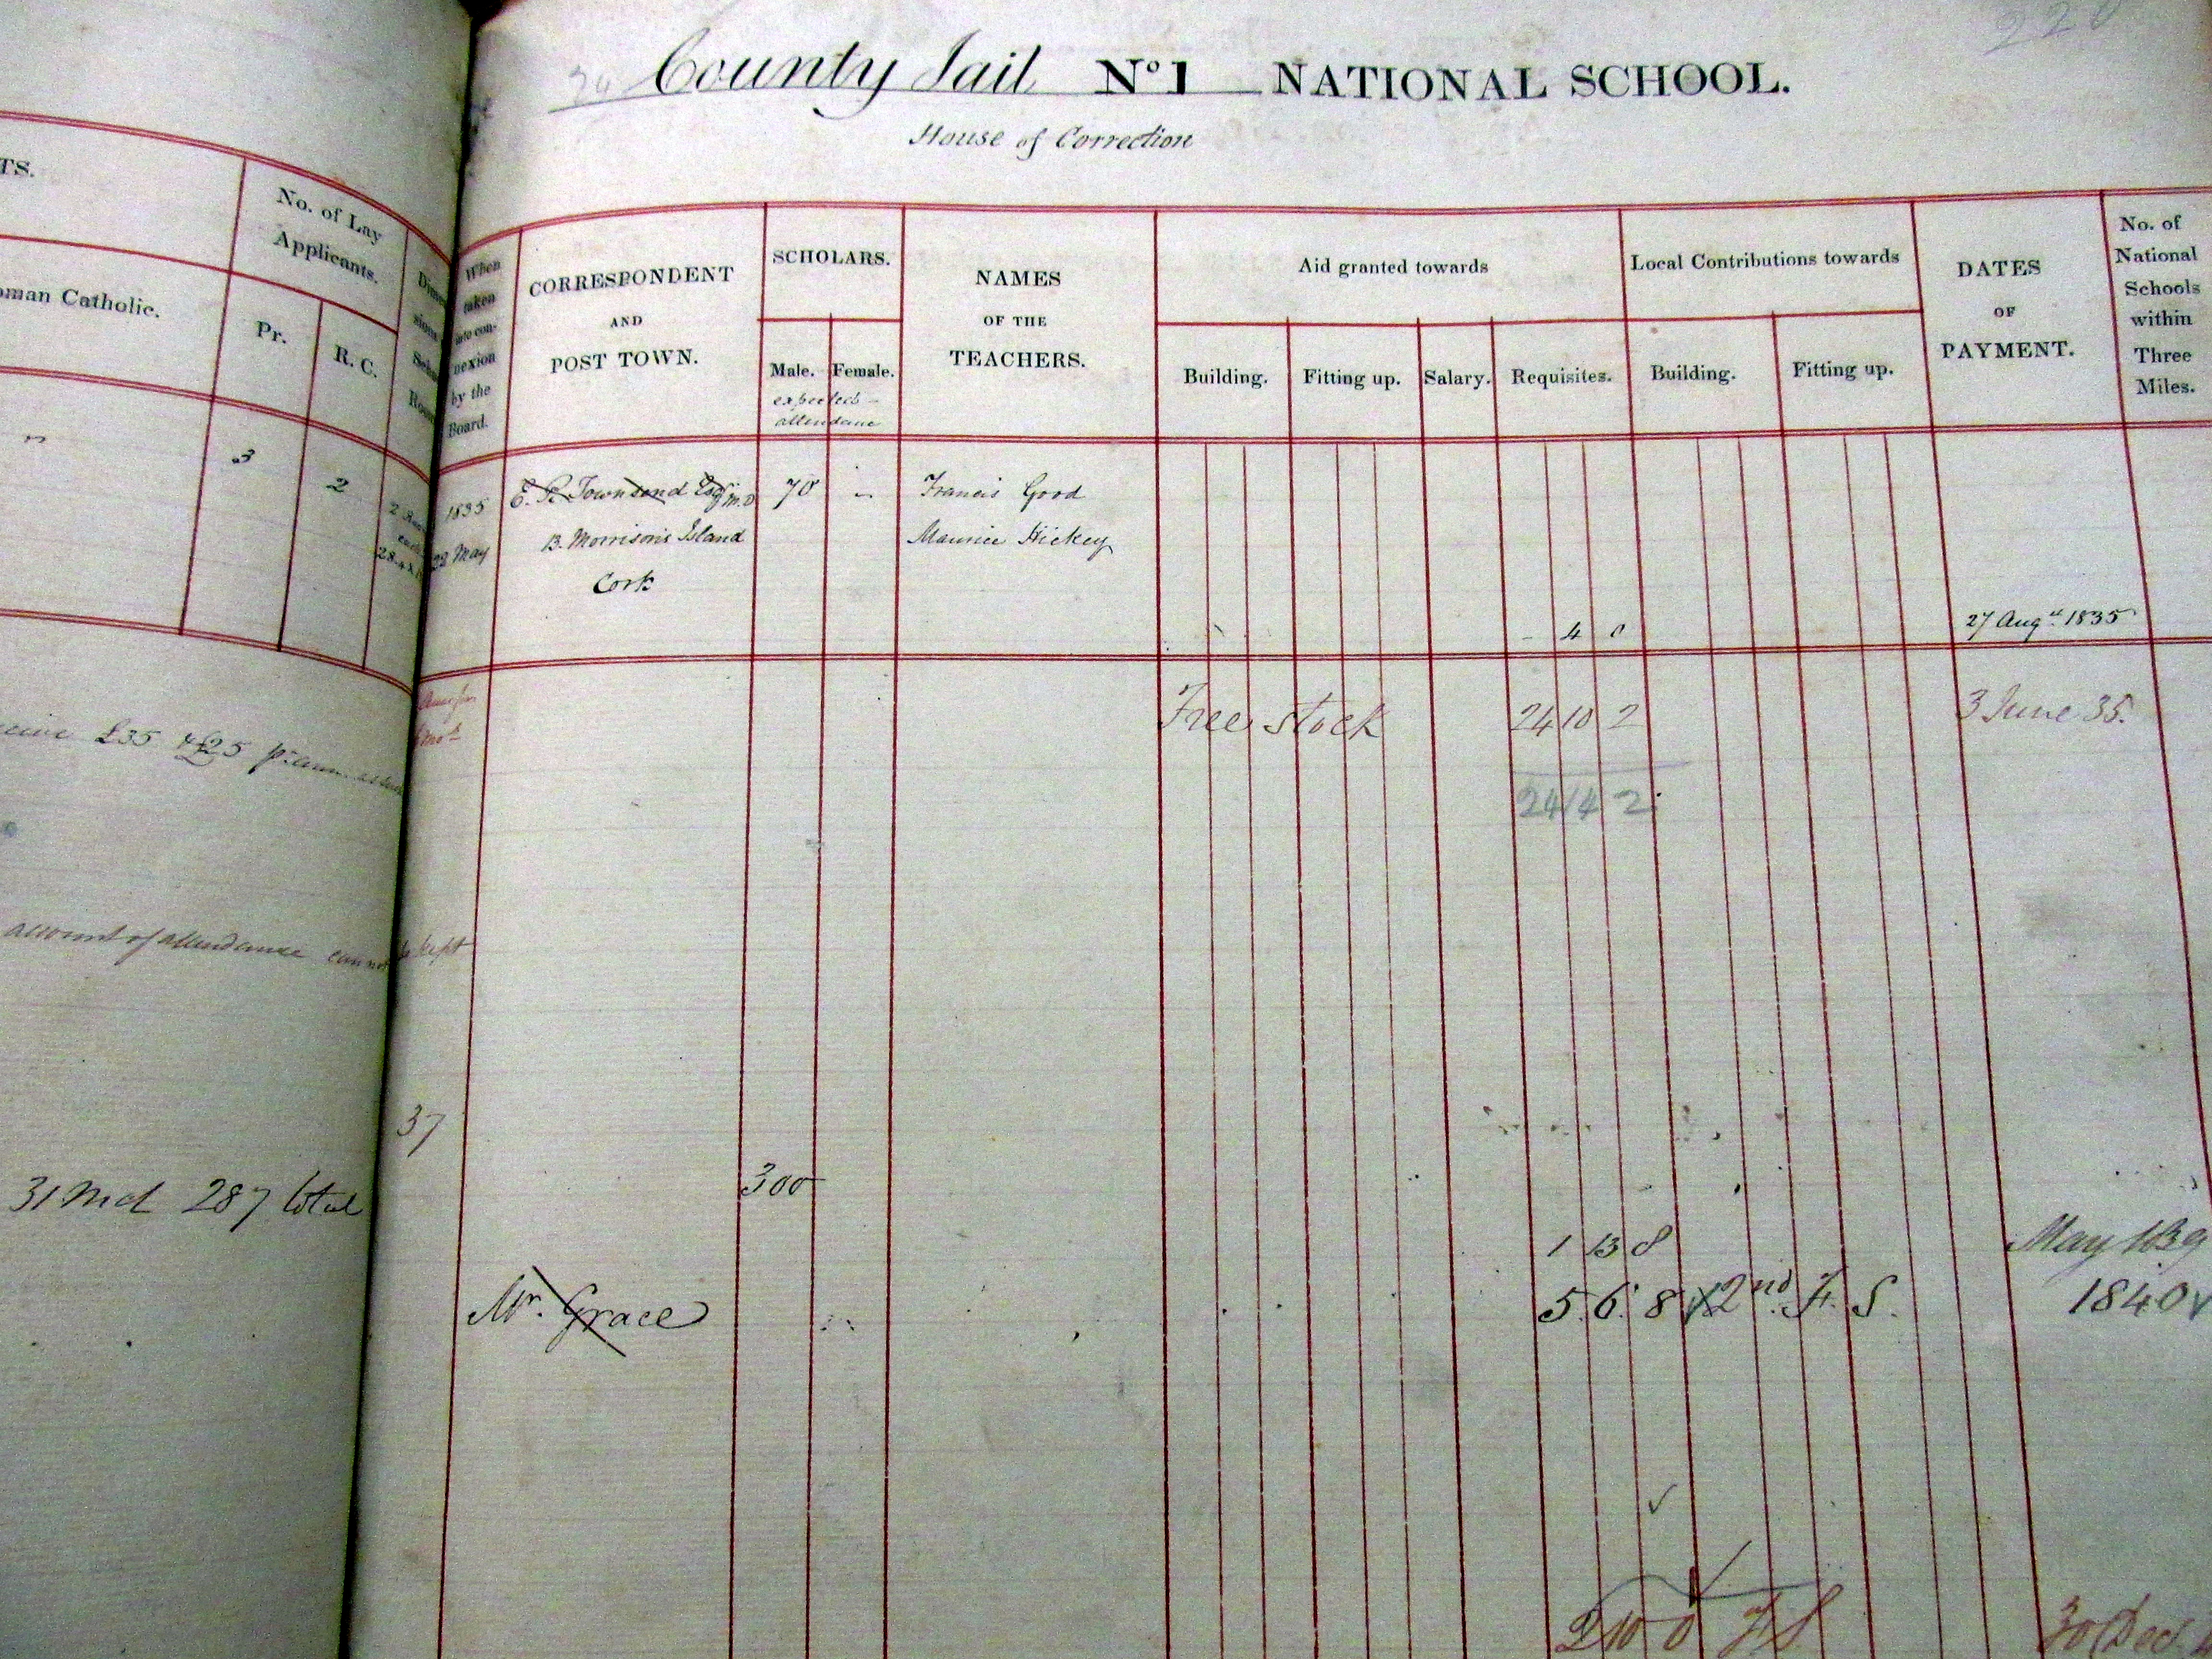 County Jail No 1 NATIONAL SCHOOL.
House of Correction
TS.
No. of Lay
Applicants.
oman Catholic.
Pr.
R. C.
When
taken
into con-
nexion
by the
Board.
CORRESPONDENT
AND
POST TOWN.
SCHOLARS.
Male. Female.
expected
attendance
NAMES
OF THE
TEACHERS.
Aid granted towards
Building. Fitting up. Salary. Requisites.
Local Contributions towards
Building. Fitting up.
DATES
OF
PAYMENT.
No. of
National
Schools
within
Three
Miles.
3
2
1835
22 May
E. R. Townsend Esq M.D
13. Morrison's Island
Cork
70
Francis Good
Maurice Hickey
- 4 0
27 Augt. 1835
Free stock 24 10 2 3 June 35.
24 14 2
£35 & £25 p. ann.
account of attendance cannot be kept
37
31 Md 287 total
300
1 13 8 May 1839
Mr. Grace
5. 6. 8 2nd. F. S. 1840
2 10 0 F S 30 Dec